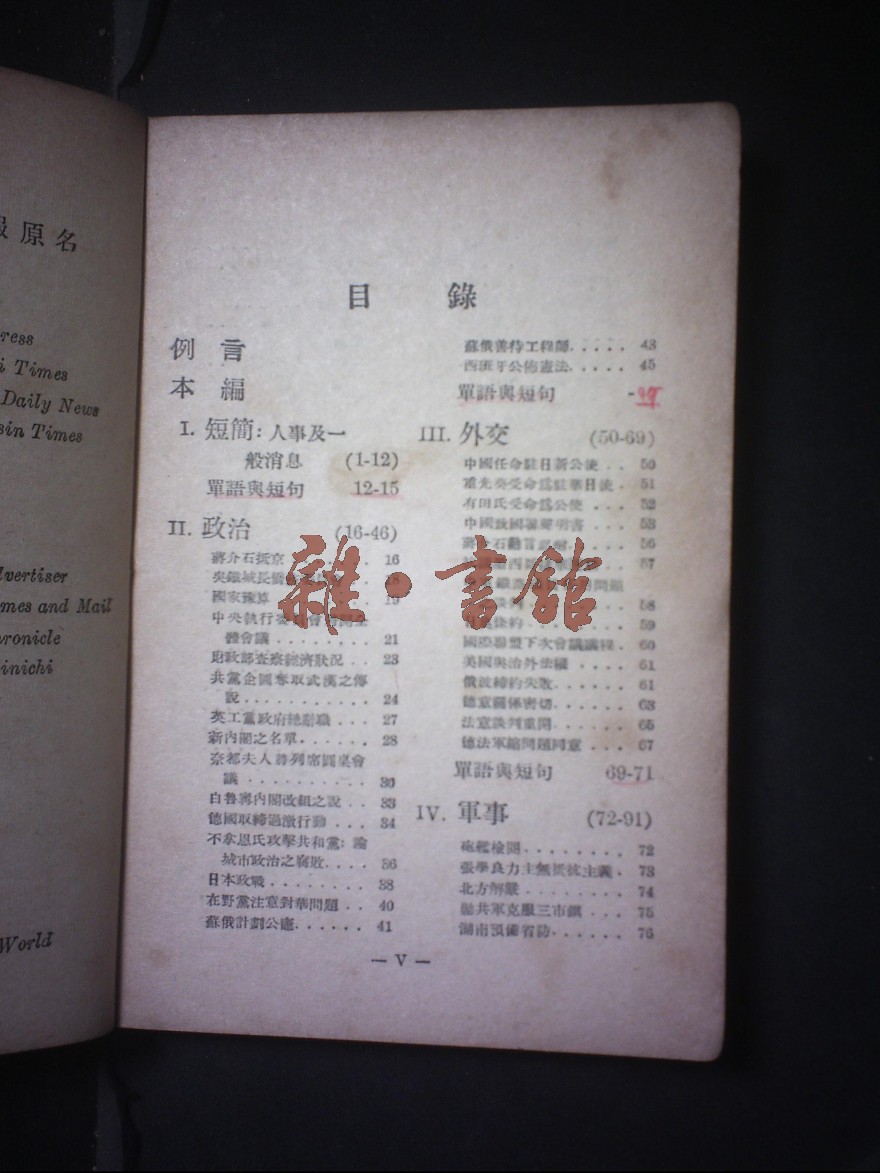 報原名
ress
i Times
Daily News
sin Times
dvertiser
mes and Mail
ronicle
inichi
World
目 錄
例 言
本 編
I. 短簡: 人事及一
般消息 (1-12)
單語與短句 12-15
II. 政治 (16-46)
蔣介石抵京 16
吳鐵城長 18
國家豫算 19
中央執行委員會
體會議 21
財政部查察經濟狀況 23
共黨企圖奪取武漢之傳
說 24
英工黨政府總辭職 27
新內閣之名單 28
奈都夫人將列席圓桌會
議 30
白魯寧內閣改組之說 33
德國取締過激行動 34
不拿恩氏攻擊共和黨; 論
城市政治之腐敗 36
日本政戰 38
在野黨注意對華問題 40
蘇俄計劃公廳 41
蘇俄善待工程師 43
西班牙公佈憲法 45
單語與短句
III. 外交 (50-69)
中國任命駐日新公使 50
重光葵受命爲駐華日使 51
有田氏受命爲公使 52
中國致國聯聲明書 53
蔣介石 56
57
58
59
國際聯盟下次會議議程 60
美國與治外法權 61
俄波締約失敗 61
德意關係密切 63
法意談判重開 65
德法軍縮問題同意 67
單語與短句 69-71
IV. 軍事 (72-91)
砲艦檢閱 72
張學良力主無抵抗主義 73
北方解嚴 74
勦共軍克服三市鎮 75
湖南預備省防 76
— V —
雜·書館